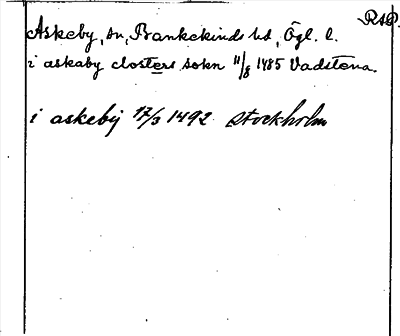 RAP.
Askeby, sn, Bankekinds hd, Ögl. l.
i askaby closters sokn 11/8 1485 Vadstena.
i askebij 17/3 1492 Stockholm